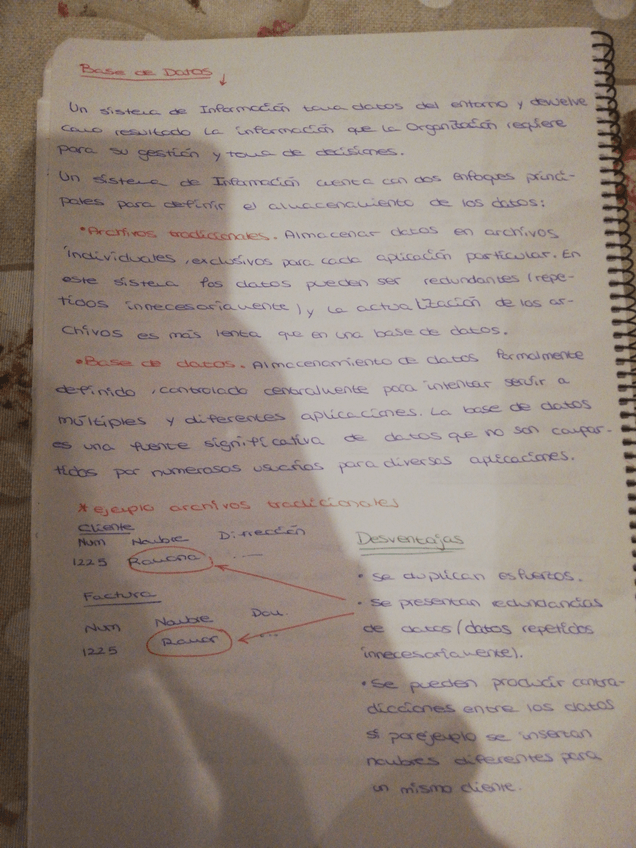 Base de Datos ↓
Un sistema de Información toma datos del entorno y devuelve
como resultado la información que la Organización requiere
para su gestión y toma de decisiones.
Un sistema de Información cuenta con dos enfoques princi-
pales para definir el almacenamiento de los datos:
•Archivos tradicionales. Almacenar datos en archivos
individuales, exclusivos para cada aplicación particular. En
este sistema los datos pueden ser redundantes (repe-
tidos innecesariamente) y la actualización de los ar-
chivos es más lenta que en una base de datos.
•Base de datos. Almacenamiento de datos formalmente
definido, controlado centralmente para intentar servir a
múltiples y diferentes aplicaciones. La base de datos
es una fuente significativa de datos que no son compar-
tidos por numerosos usuarios para diversas aplicaciones.
* ejemplo archivos tradicionales
Cliente
Num Nombre Dirección
1225 Ramona ....
Factura
Num Nombre Dom.
1225 Ramor ...
Desventajas
• Se duplican esfuerzos.
• Se presentan redundancias
de datos (datos repetidos
innecesariamente).
• Se pueden producir contra-
dicciones entre los datos
si por ejemplo se insertan
nombres diferentes para
un mismo cliente.